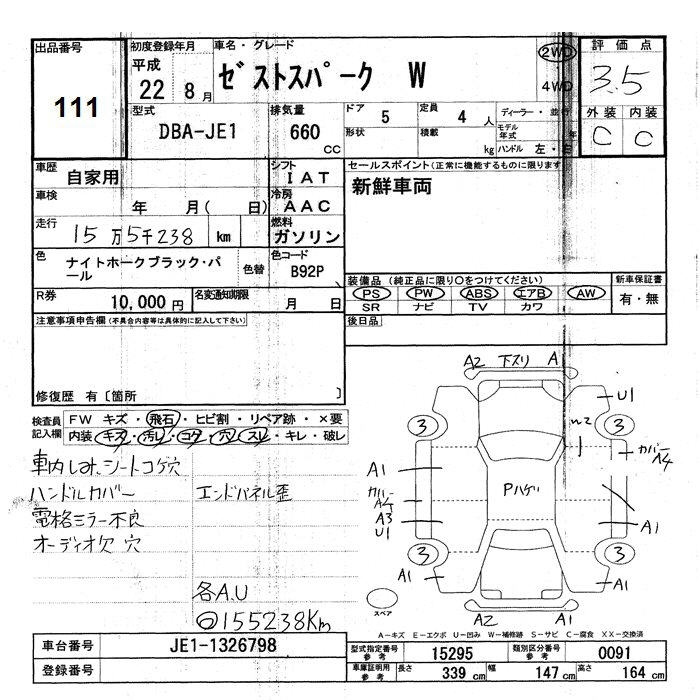 出品番号
111
初度登録年月
平成
22 8月
車名・グレード
ゼストスパーク W
2WD
4WD
評価点
3.5
外装 内装
C C
型式
DBA-JE1
排気量
660
CC
ドア 5
形状
定員 4人
積載 kg
ディーラー・並行
モデル年式 年
ハンドル 左・右
車歴
自家用
シフト
IAT
車検 年 月( 日)
冷房
AAC
走行
15万5千238 km
燃料
ガソリン
色
ナイトホークブラック・パール
色替
色コード
B92P
R券
10,000円
名変通知期限
月 日
セールスポイント(正常に機能するものに限ります)
新鮮車両
装備品 (純正品に限り○をつけてください)
PS PW ABS エアB AW
SR ナビ TV カワ
新車保証書
有・無
後日品
注意事項申告欄(不具合内容等は具体的に記入して下さい)
修復歴 有〔箇所 〕
検査員記入欄
FW キズ・飛石・ヒビ割・リペア跡・×要
内装・キズ・汚レ・コゲ・穴・スレ・キレ・破レ
車内しみ、シートコゲ穴
ハンドルカバー
エンドパネル歪
電格ミラー不良
オーディオ欠 穴
各A.U
◎155238Km
A2 下スリ A1
U1
3 3
カバー A4
A1
カバー
A4
A3
U1
Pハゲ
A1
3 3
A1 A1
A2 A1
スペア
A-キズ E-エクボ U-凹み W-補修跡 S-サビ C-腐食 XX-交換済
車台番号
JE1-1326798
登録番号
型式指定番号
参考
15295
類別区分番号
参考
0091
車庫証明用
参考
長さ 339 cm
幅 147 cm
高さ 164 cm